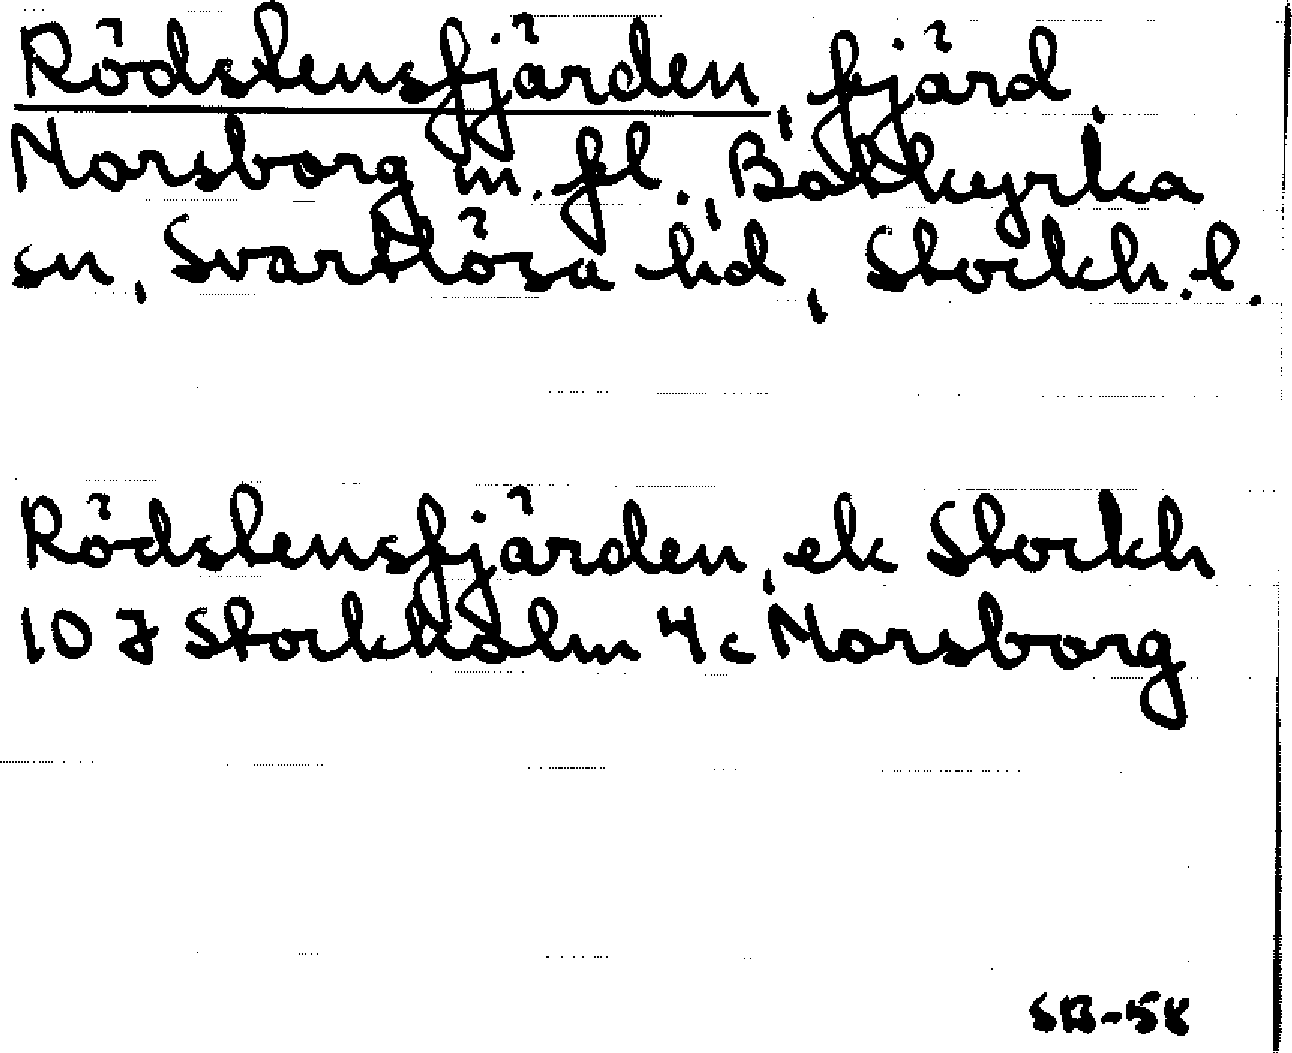 Rödstensfjärden, fjärd
Norsborg m.fl., Botkyrka
sn, Svartlösa hd, Stockh.l.
Rödstensfjärden, ek Stockh
10 J Stockholm 4c Norsborg
SB-58